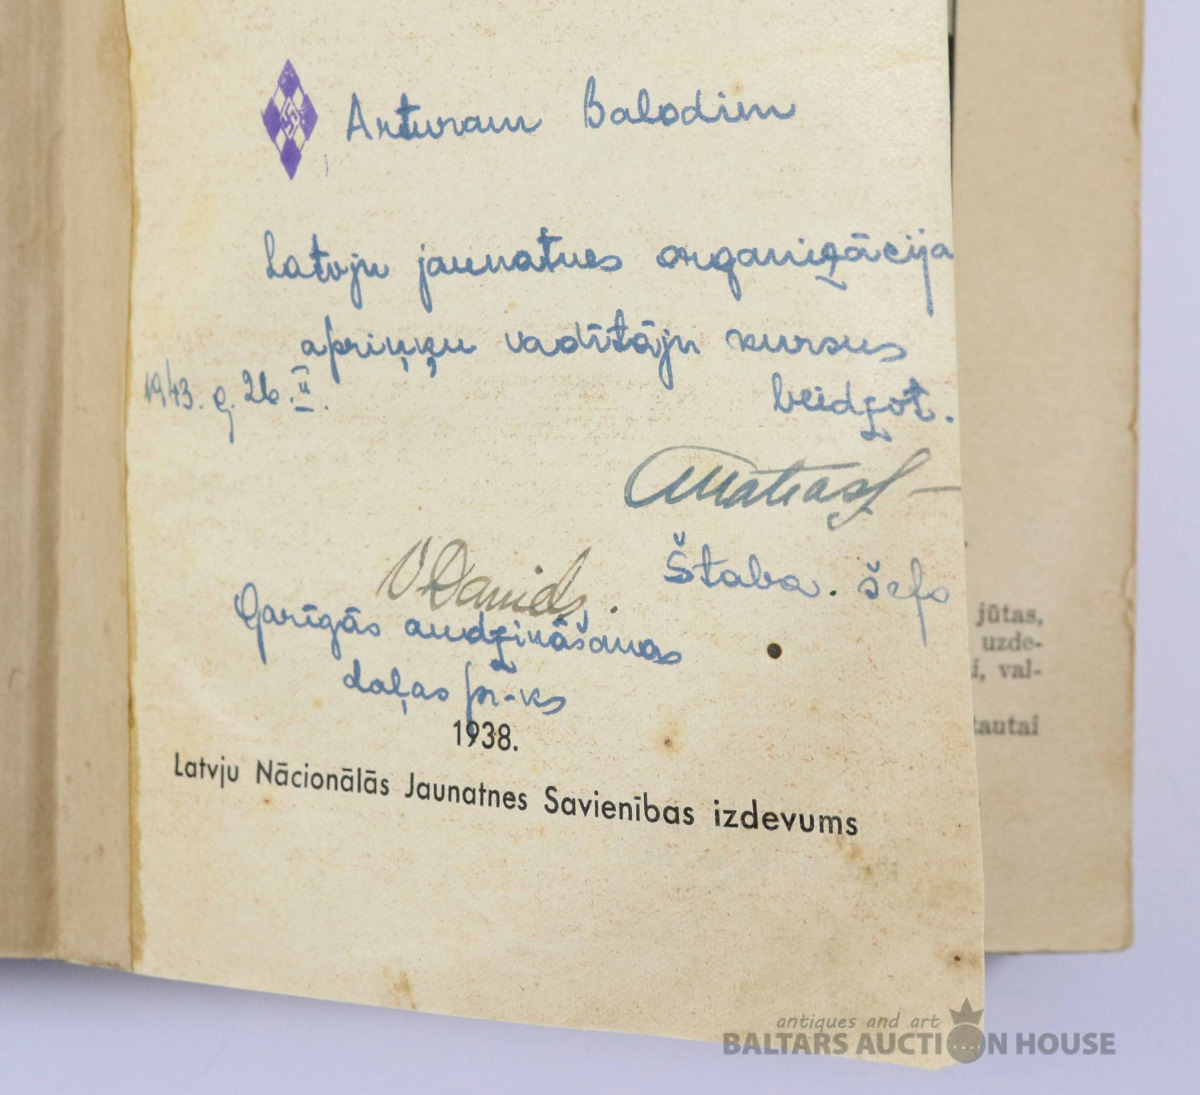 Arturam Balodim
Latvju jaunatnes organizācija
apriņķu vadītāju kursus
1943. g. 26. II.
beidzot.
Štaba. šefs
V Danids.
Garīgās audzināšanas
daļas pr-ks
1938.
Latvju Nācionālās Jaunatnes Savienības izdevums
jūtas,
uzde-
i, val-
tautai
antiques and art
BALTARS AUCTION HOUSE